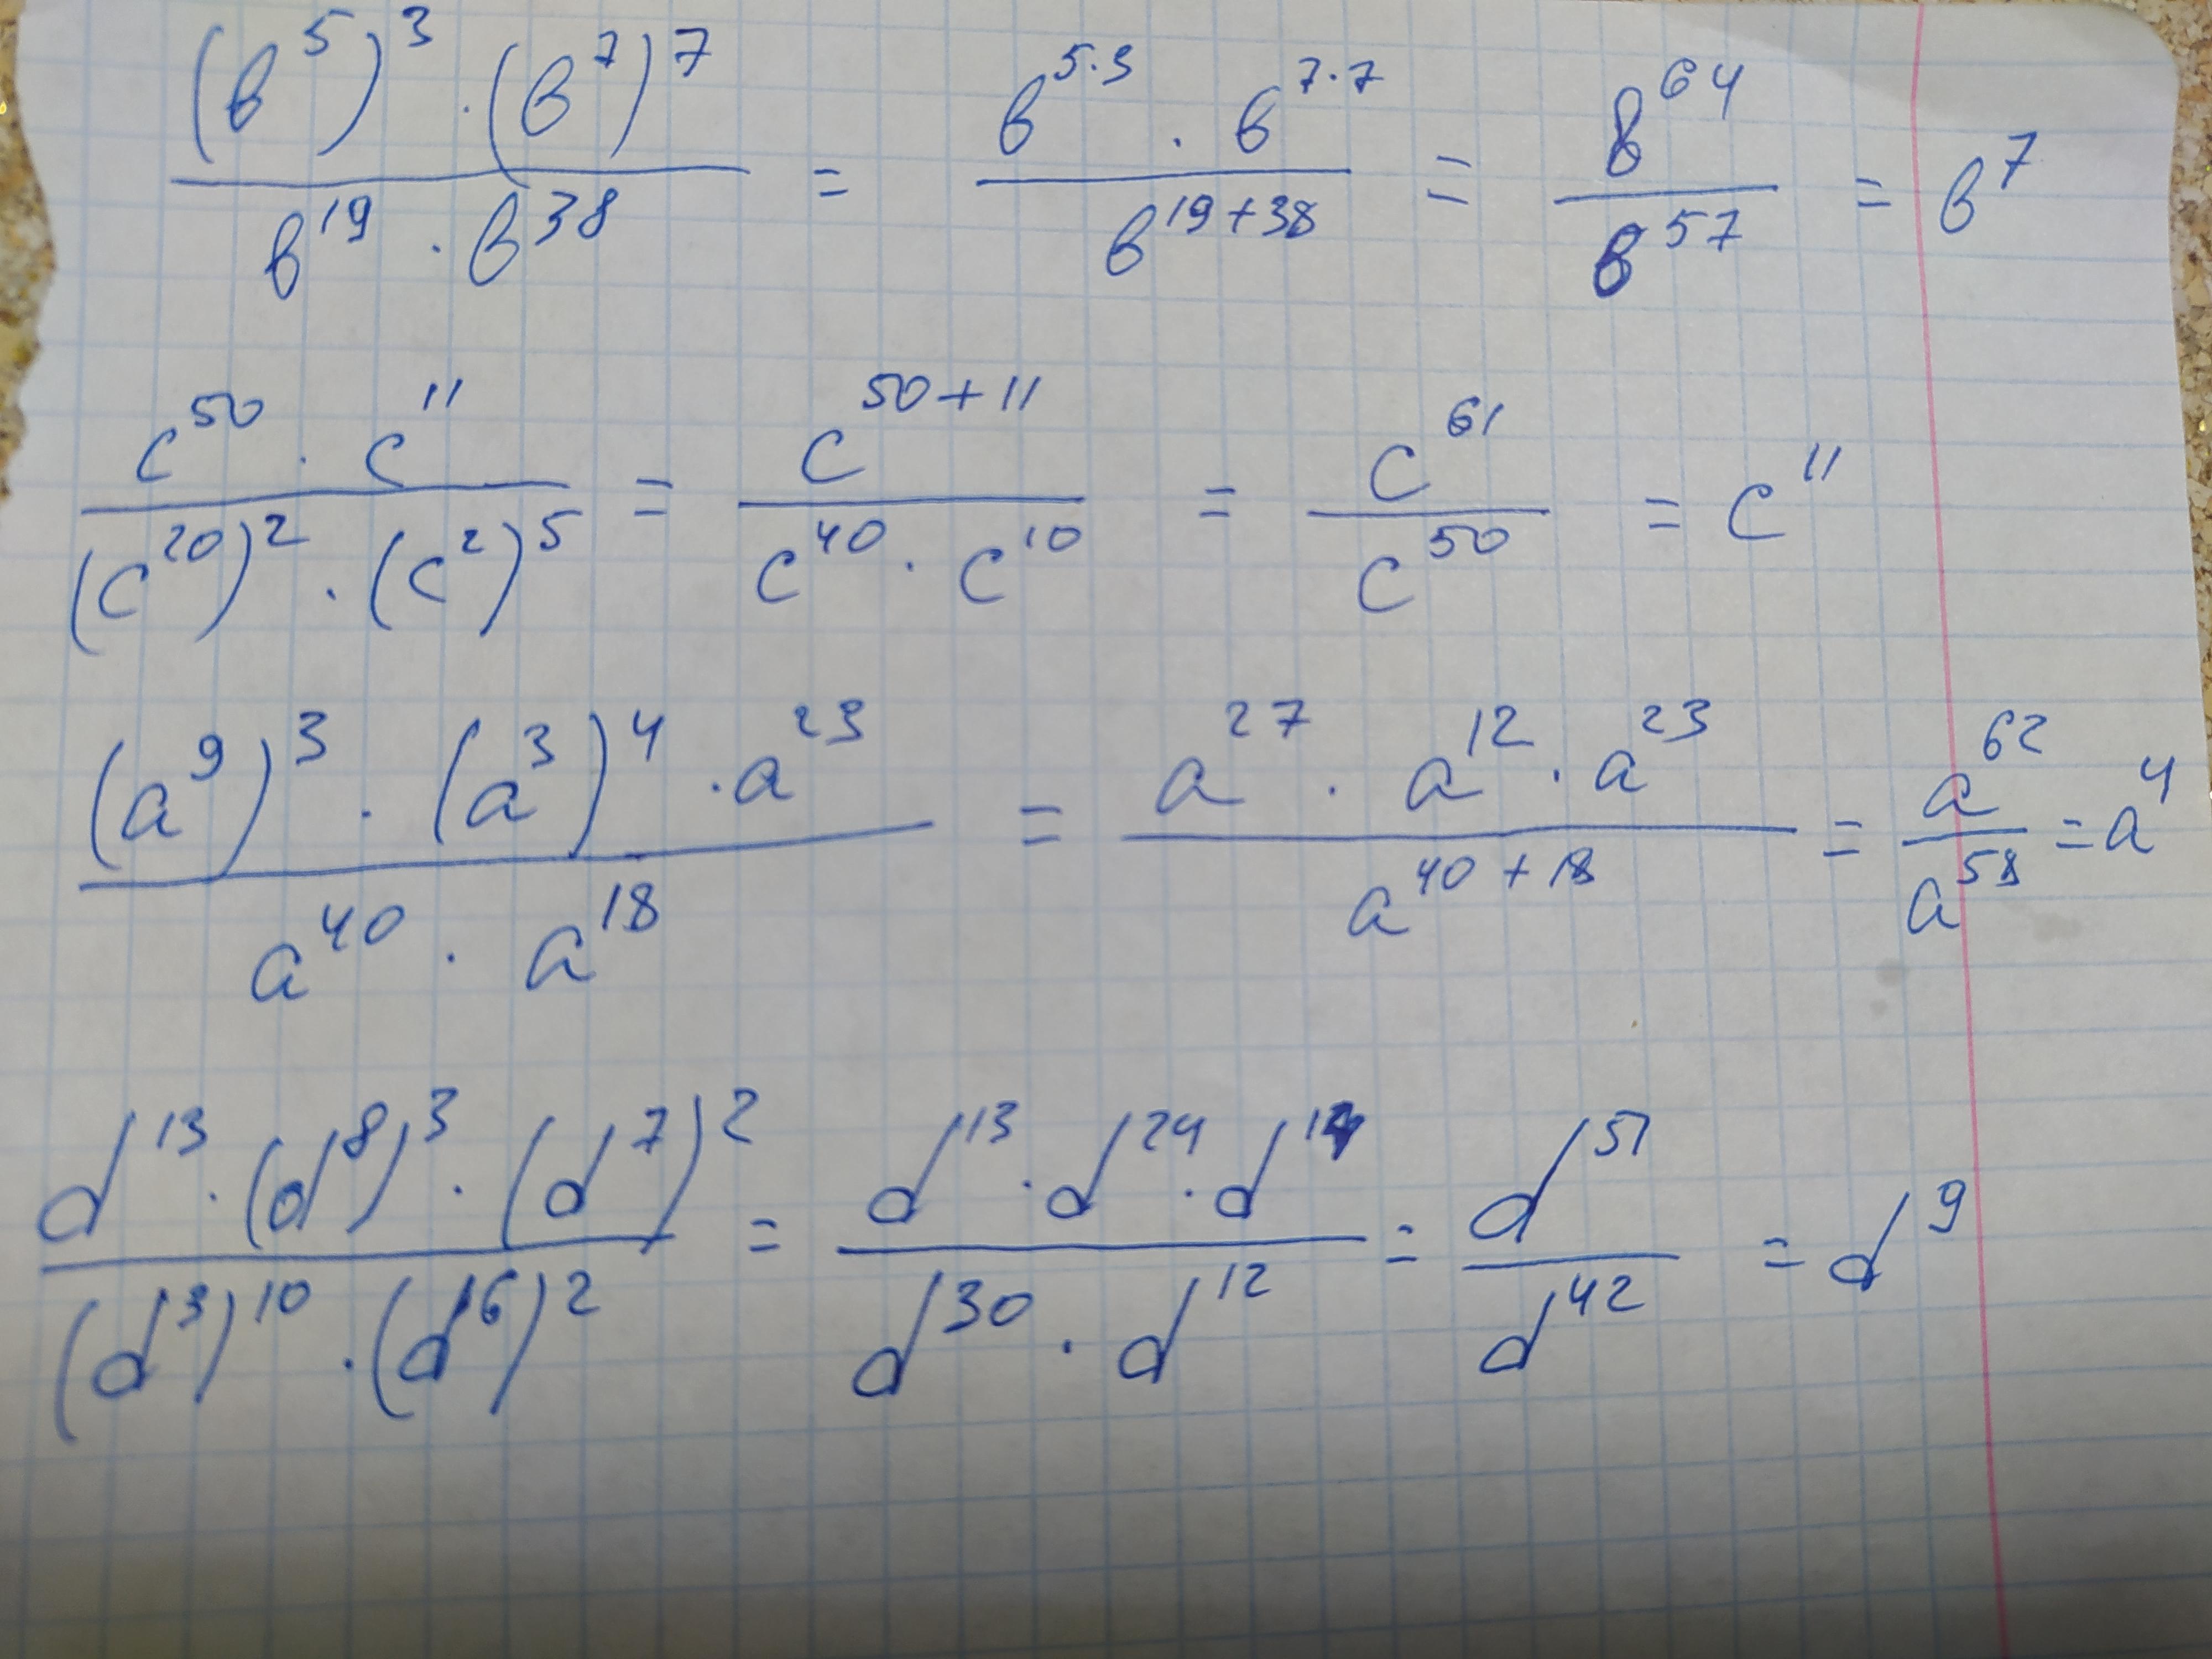 (b⁵)³ · (b⁷)⁷ / b¹⁹ · b³⁸ = b⁵·³ · b⁷·⁷ / b¹⁹⁺³⁸ = b⁶⁴ / b⁵⁷ = b⁷
c⁵⁰ · c¹¹ / (c²⁰)² · (c²)⁵ = c⁵⁰⁺¹¹ / c⁴⁰ · c¹⁰ = c⁶¹ / c⁵⁰ = c¹¹
(a⁹)³ · (a³)⁴ · a²³ / a⁴⁰ · a¹⁸ = a²⁷ · a¹² · a²³ / a⁴⁰⁺¹⁸ = a⁶² / a⁵⁸ = a⁴
d¹³ · (d⁸)³ · (d⁷)² / (d³)¹⁰ · (d⁶)² = d¹³ · d²⁴ · d¹⁴ / d³⁰ · d¹² = d⁵¹ / d⁴² = d⁹